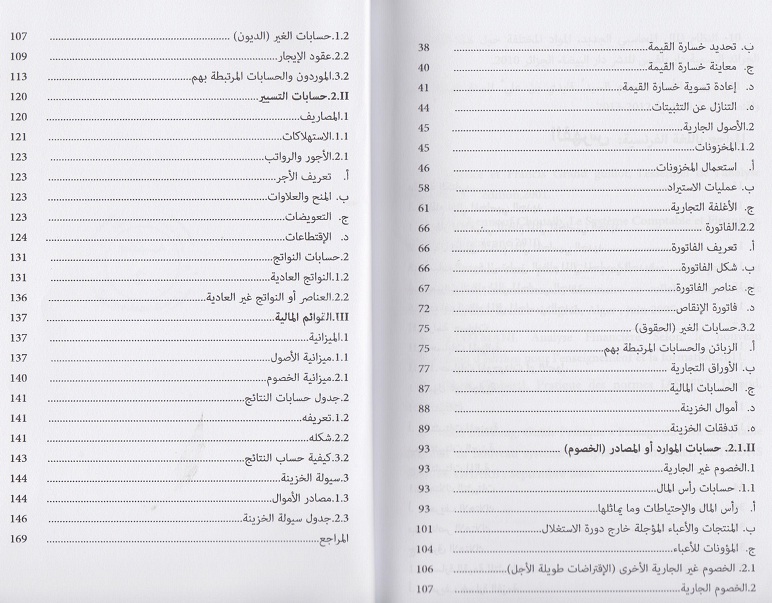 ب. تحديد خسارة القيمة ........ 38
ج. معاينة خسارة القيمة ........ 40
د. إعادة تسوية خسارة القيمة ........ 41
ه. التنازل عن التثبيتات ........ 44
2.الأصول الجارية ........ 45
1.2.المخزونات ........ 45
أ. استعمال المخزونات ........ 46
ب. عمليات الاستيراد ........ 58
ج. الأغلفة التجارية ........ 61
2.2.الفاتورة ........ 66
أ. تعريف الفاتورة ........ 66
ب. شكل الفاتورة ........ 66
ج. عناصر الفاتورة ........ 67
د. فاتورة الإنقاص ........ 72
3.2.حسابات الغير (الحقوق) ........ 75
أ. الزبائن والحسابات المرتبطة بهم ........ 75
ب. الأوراق التجارية ........ 77
ج. الحسابات المالية ........ 87
د. أموال الخزينة ........ 88
ه. تدفقات الخزينة ........ 89
2.1.II. حسابات الموارد أو المصادر (الخصوم) ........ 93
1.الخصوم غير الجارية ........ 93
1.1. حسابات رأس المال ........ 93
أ. رأس المال والإحتياطات وما يماثلها ........ 93
ب. المنتجات والأعباء المؤجلة خارج دورة الاستغلال ........ 101
ج. المؤونات للأعباء ........ 104
2.1. الخصوم غير الجارية الأخرى (الإقتراضات طويلة الأجل) ........ 106
2.الخصوم الجارية ........ 107
1.2.حسابات الغير (الديون) ........ 107
2.2.عقود الإيجار ........ 109
3.2.الموردون والحسابات المرتبطة بهم ........ 113
2.II.حسابات التسيير ........ 120
1.المصاريف ........ 120
1.1.الاستهلاكات ........ 121
2.1.الأجور والرواتب ........ 123
أ. تعريف الأجر ........ 123
ب. المنح والعلاوات ........ 123
ج. التعويضات ........ 123
د. الإقتطاعات ........ 124
2.حسابات النواتج ........ 131
1.2.النواتج العادية ........ 131
2.2.العناصر أو النواتج غير العادية ........ 136
III.القوائم المالية ........ 137
1.الميزانية ........ 137
1.1.ميزانية الأصول ........ 137
2.1.ميزانية الخصوم ........ 140
2.جدول حسابات النتائج ........ 141
1.2.تعريفه ........ 141
2.2.شكله ........ 141
3.2.كيفية حساب النتائج ........ 143
3.سيولة الخزينة ........ 144
1.3.مصادر الأموال ........ 144
2.3.جدول سيولة الخزينة ........ 146
المراجع ........ 169